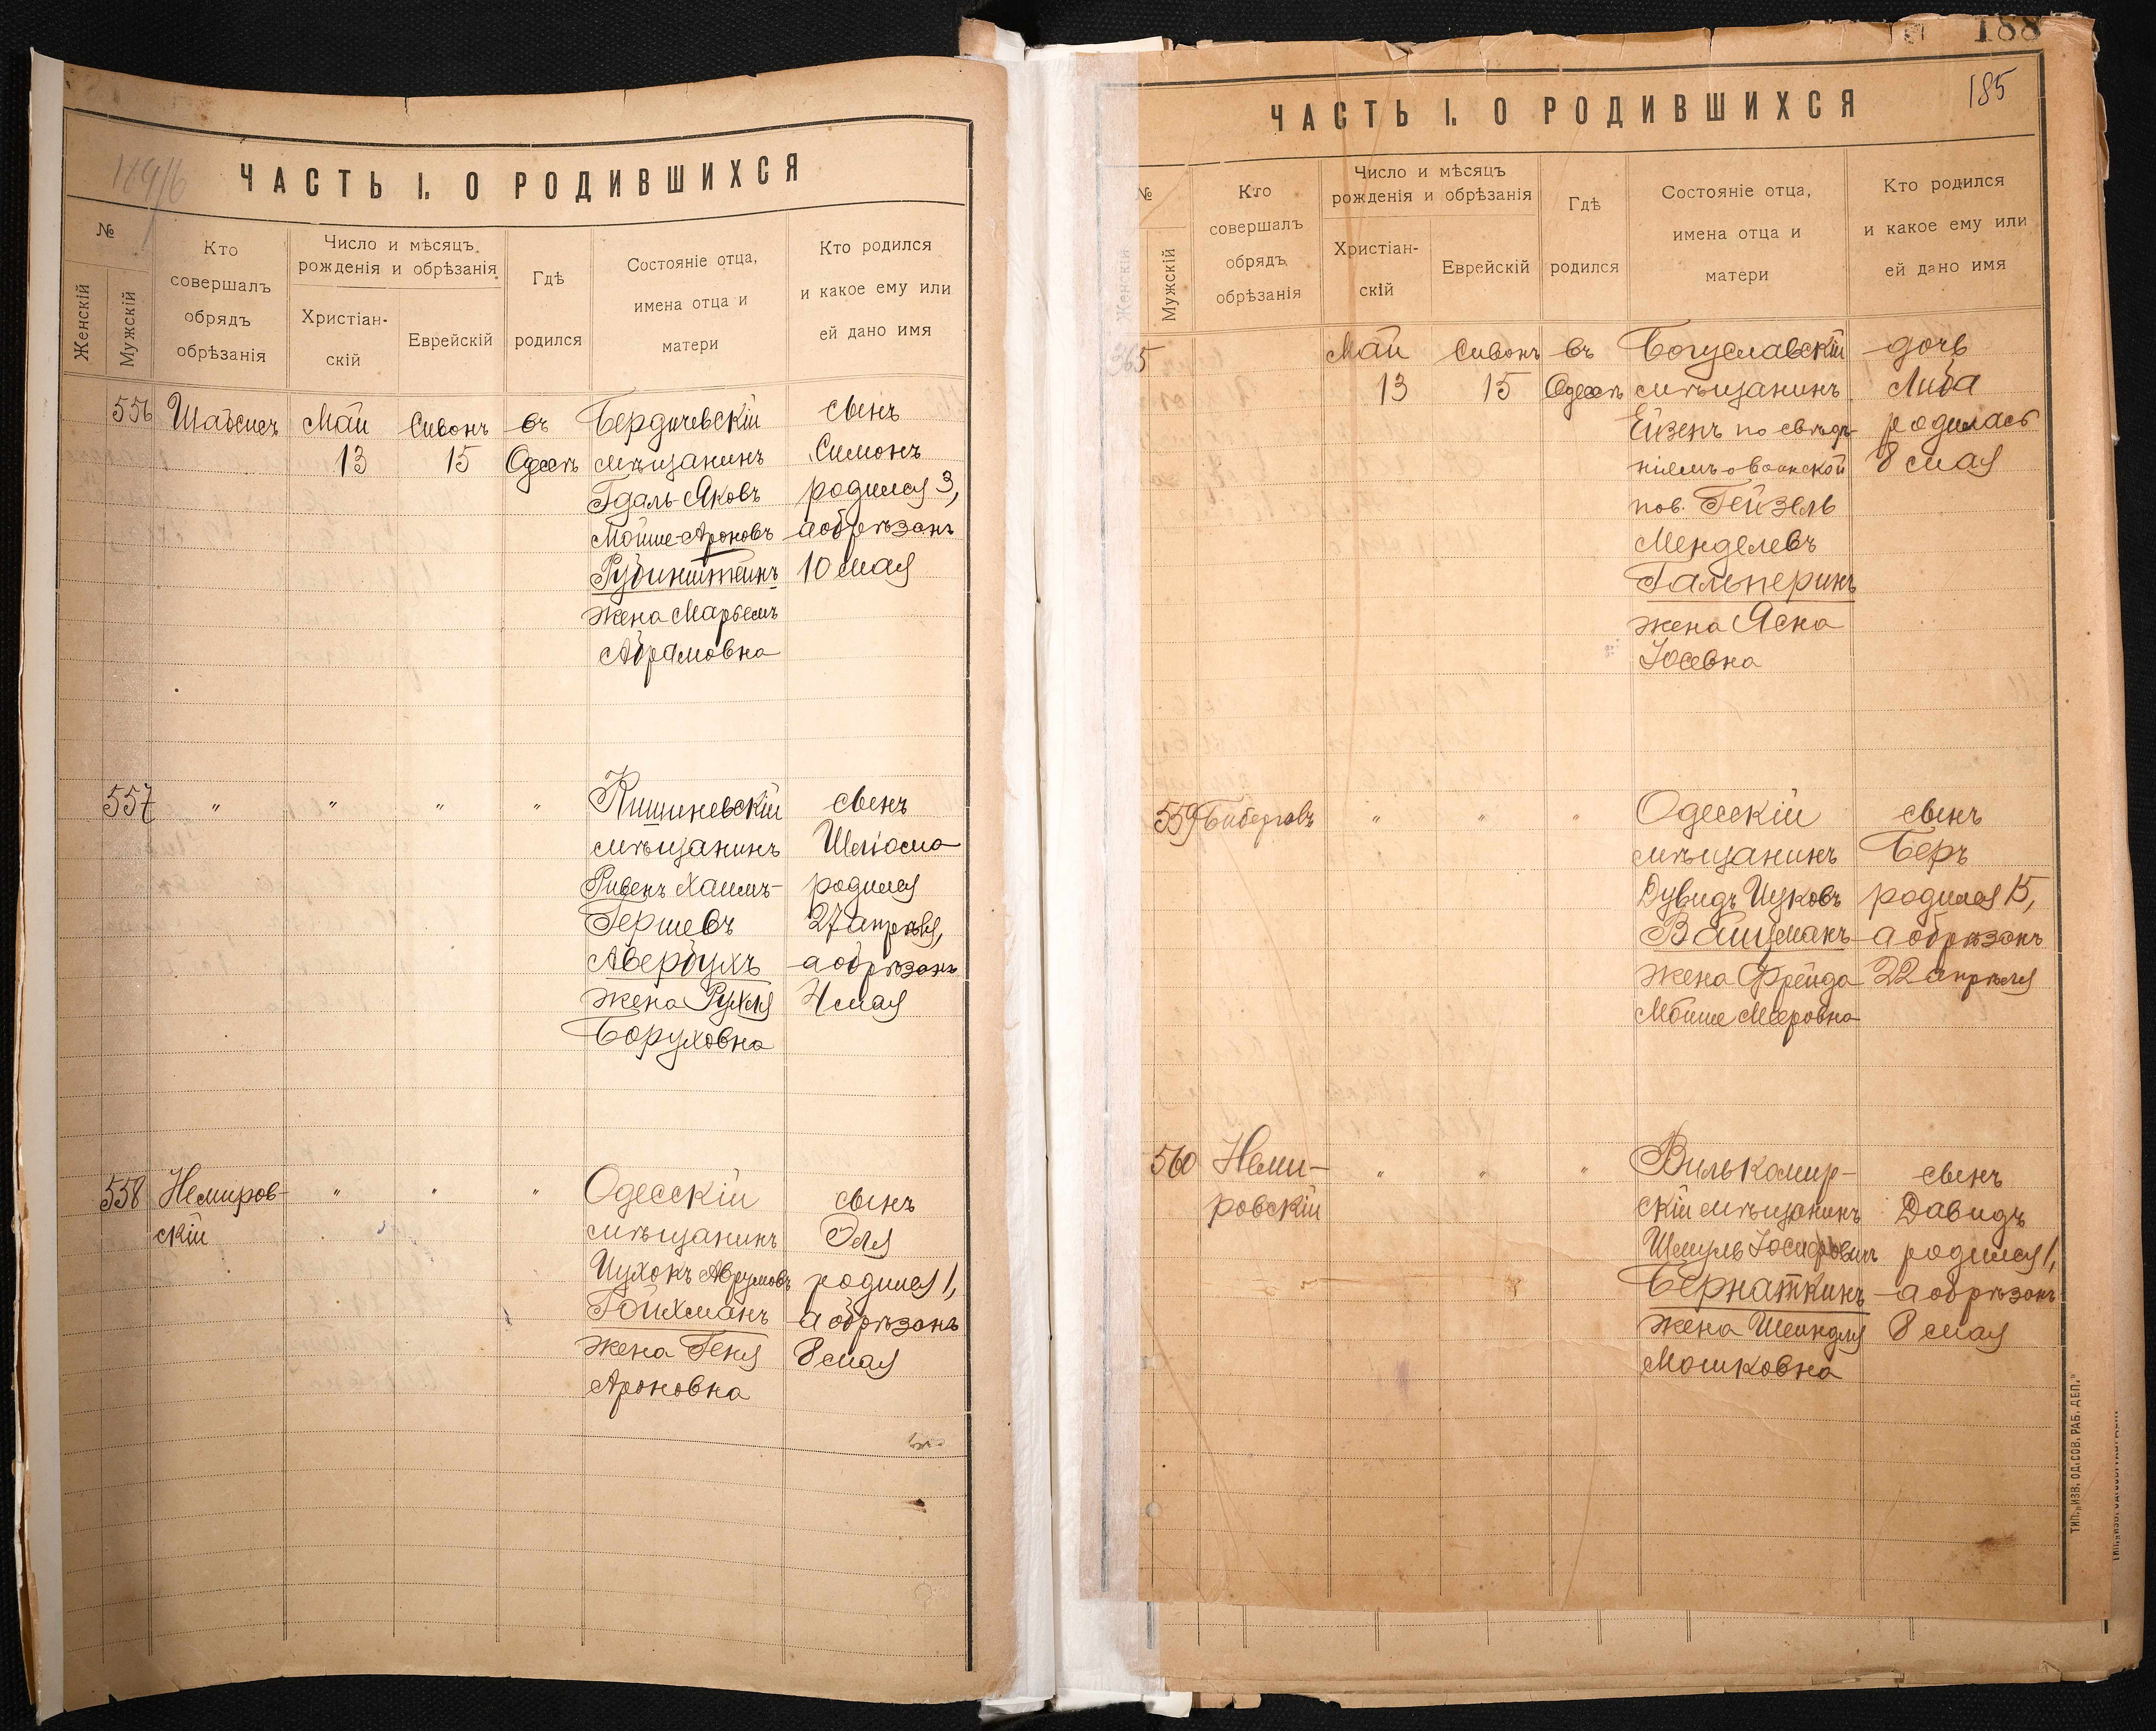 ЧАСТЬ I. О РОДИВШИХСЯ
№
Женскій
Мужскій
Кто
совершалъ
обрядъ
обрѣзанія
Число и мѣсяцъ
рожденія и обрѣзанія
Христіан-
скій
Еврейскій
Гдѣ
родился
Состояніе отца,
имена отца и
матери
Кто родился
и какое ему или
ей дано имя
556 Шабсисъ Май Сивонъ въ Бердичевскій сынъ
13 15 Одессѣ мѣщанинъ Симонъ
Гдаль-Яковъ родился 3,
Мойше-Ароновъ а обрѣзанъ
Рубинштейнъ 10 мая
жена Марьемъ
Абрамовна
557 " " " " Кишиневскій сынъ
мѣщанинъ Шліома
Ривенъ Хаимъ- родился
Гершевъ 27 апрѣля,
Авербухъ а обрѣзанъ
жена Рухля 4 мая
Боруховна
558 Немиров- " " " Одесскій сынъ
скій мѣщанинъ Эля
Ицхокъ Аврумовъ родился 1,
Гойхманъ а обрѣзанъ
жена Геня 8 мая
Ароновна
188
185
ЧАСТЬ I. О РОДИВШИХСЯ
№
Женскій
Мужскій
Кто
совершалъ
обрядъ
обрѣзанія
Число и мѣсяцъ
рожденія и обрѣзанія
Христіан-
скій
Еврейскій
Гдѣ
родился
Состояніе отца,
имена отца и
матери
Кто родился
и какое ему или
ей дано имя
365 Май Сивонъ въ Богуславскій дочь
13 15 Одессѣ мѣщанинъ Либа
Ейзенъ по свѣдѣ- родилась
ніемъ о воинской 8 мая
пов. Гейзель
Менделевъ
Гальперинъ
жена Яска
Іосевна
559 " " " Одесскій сынъ
мѣщанинъ Беръ
Дувидъ Ицковъ родился 15,
Вайцманъ а обрѣзанъ
жена Фрейда 22 апрѣля
Мойше Мееровна
560 Неми- " " " Вилькомир- сынъ
ровскій скій мѣщанинъ Давидъ
Шмуль Іосифовичъ родился 1,
Бернаткинъ а обрѣзанъ
жена Шейндля 8 мая
Мошковна
ТИП. „ИЗВ. ОД. СОВ. РАБ. ДЕП."